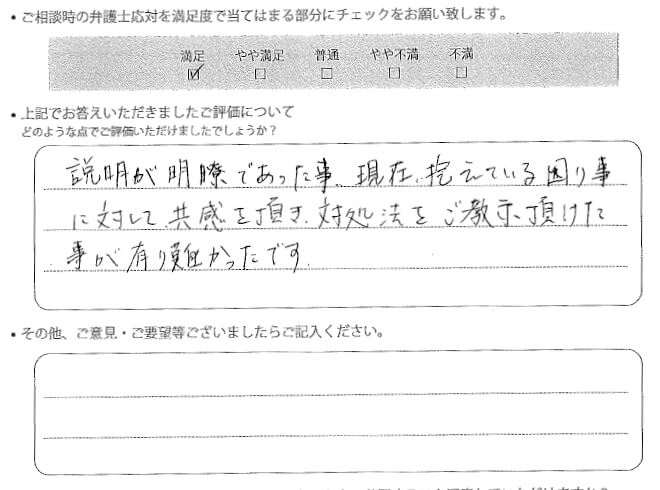 • ご相談時の弁護士応対を満足度で当てはまる部分にチェックをお願い致します。
満足 やや満足 普通 やや不満 不満
☑ □ □ □ □
• 上記でお答えいただきましたご評価について
どのような点でご評価いただけましたでしょうか？
説明が明瞭であった事、現在、抱えている困り事
に対して、共感を頂き、対処法をご教示頂けた
事が有り難かったです。
• その他、ご意見・ご要望等ございましたらご記入ください。